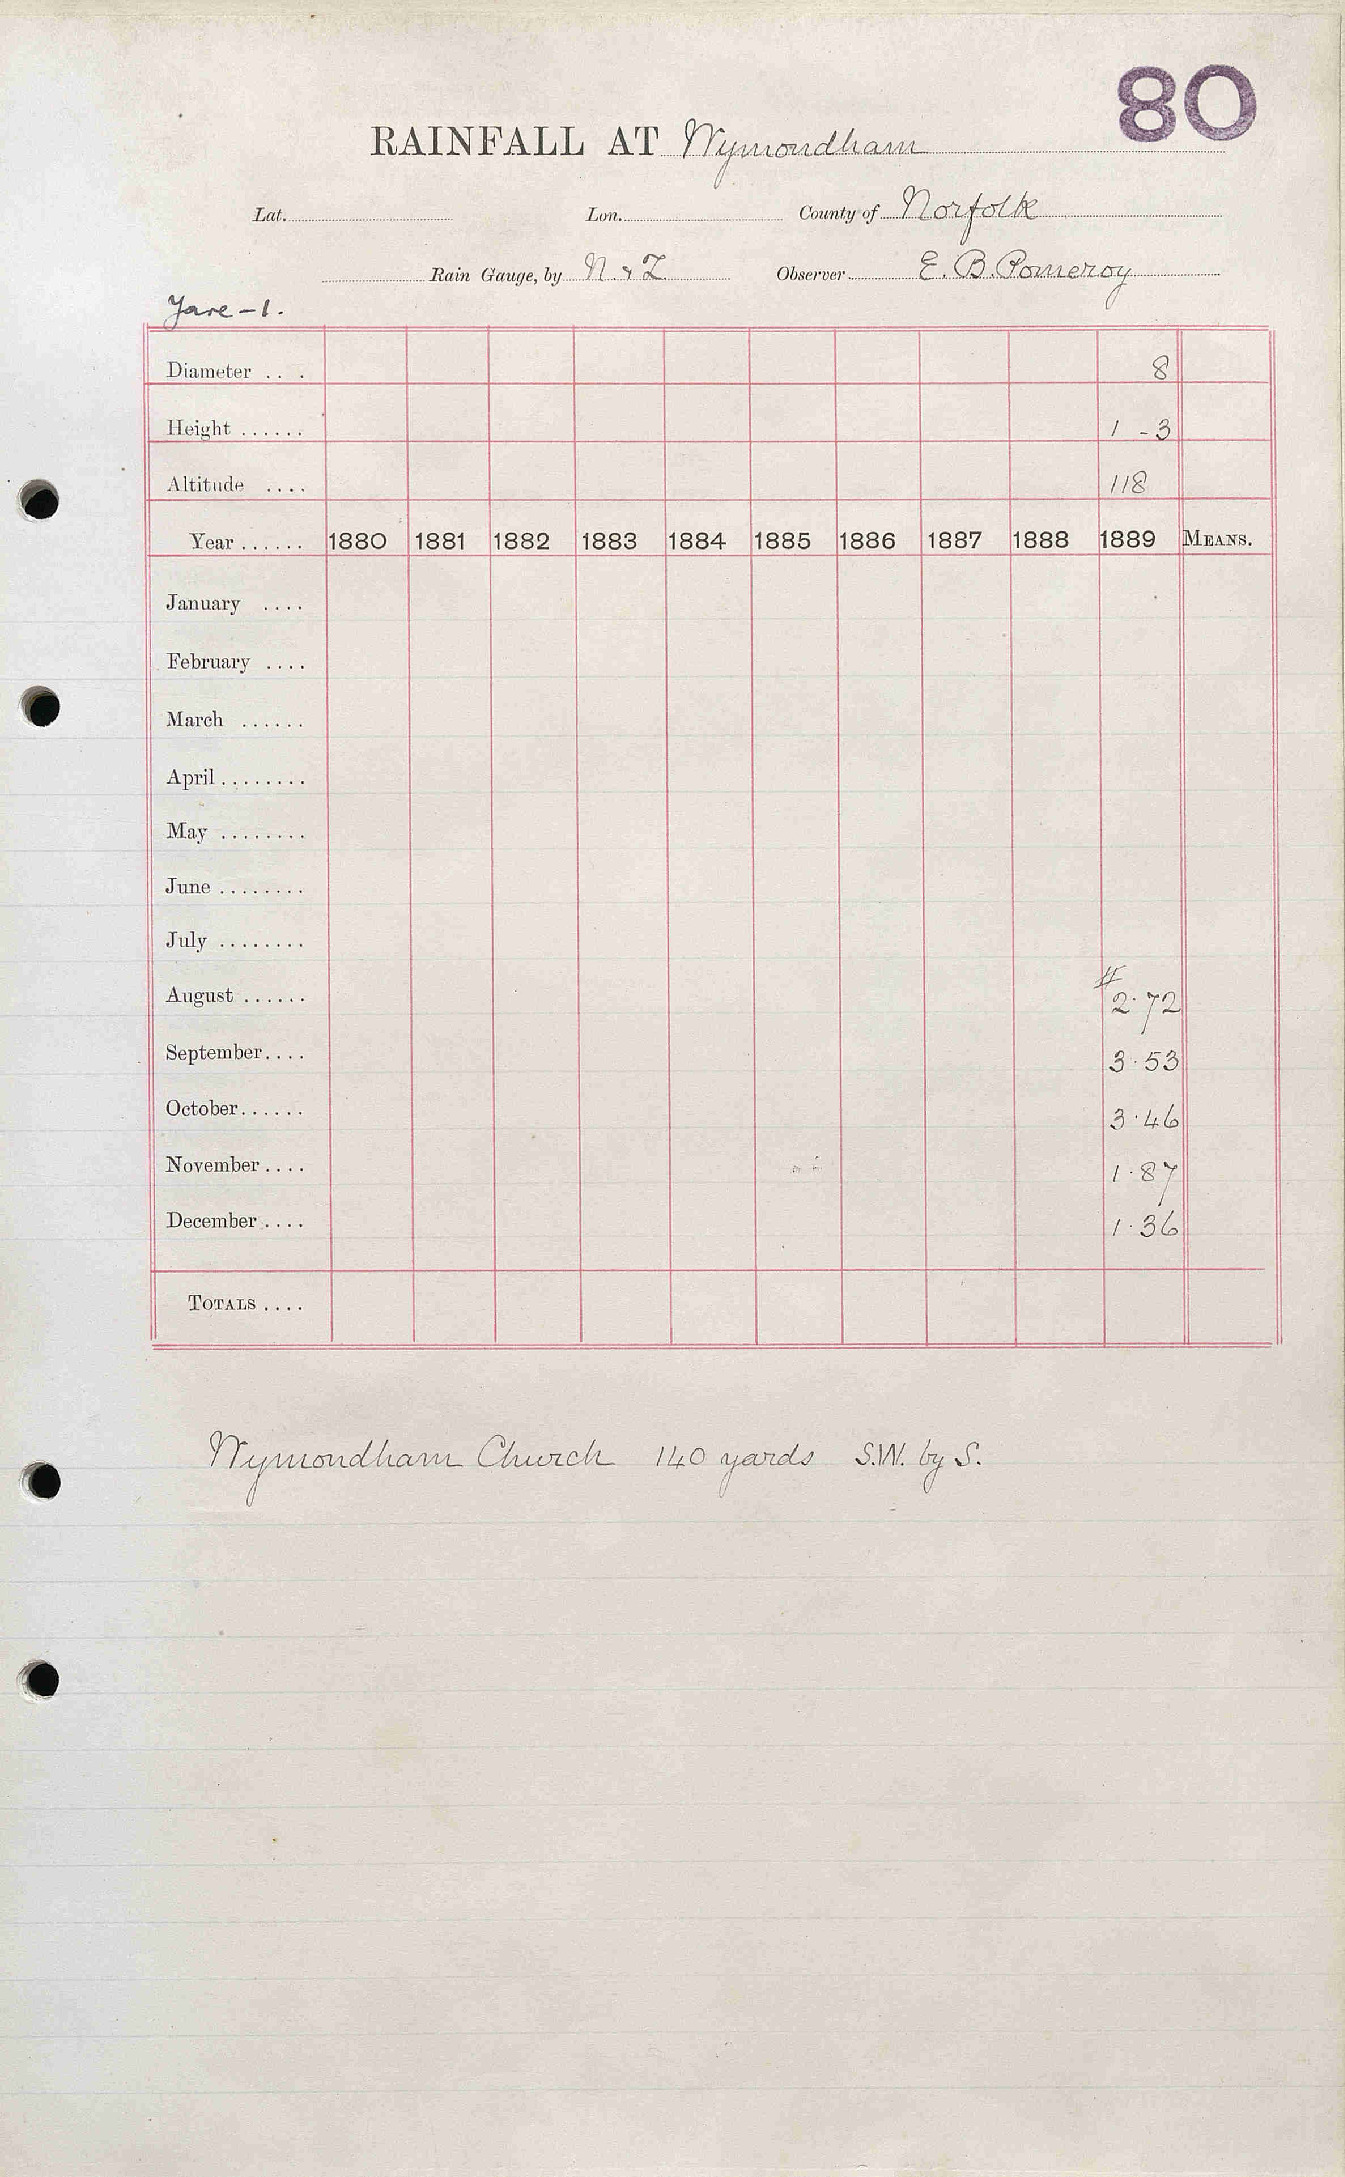 80
RAINFALL AT Wymondham
Lat. Lon. County of Norfolk
Rain Gauge, by N & Z Observer E. B. Pomeroy
Yare - 1.
Diameter . . . 8
Height ...... 1 - 3
Altitude .... 118
Year ...... 1880 1881 1882 1883 1884 1885 1886 1887 1888 1889 MEANS.
January ....
February ....
March ......
April ........
May ........
June ........
July ........
August ...... # 2.72
September .... 3.53
October ...... 3.46
November .... 1.87
December .... 1.36
TOTALS ....
Wymondham Church 140 yards S.W. by S.